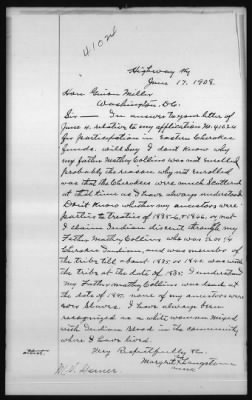 41024
Highway Ky
June 17, 1908.
Hon Guion Miller
Washington, D.C.
Sir — In answer to your letter of
June 4, relative to my application No. 41024
for participation in Eastern Cherokee
funds. will say I dont know why
my father Mathey Collins was not enrolled
probably the reason why not enrolled
was that the Cherokee were much scattered
at that time as I have always understood
Dont know whether my ancestors were
parties to treaties of 1835-6, & 1846. or not
I claim Indian discent through my
Father Mathey Collins who was
Cherokee Indian, and was member of
the tribe till about 1835 or
the tribe at the date of 1835. I understand
my Father Mathey Collins was
the date of 18 none of my ancestors were
ever slaves. I have always been
recognized as a white woman mixed
with Indian Blood in the community
where I have lived.
Very Respectfully &c
Margret Livingston
mark
attest.